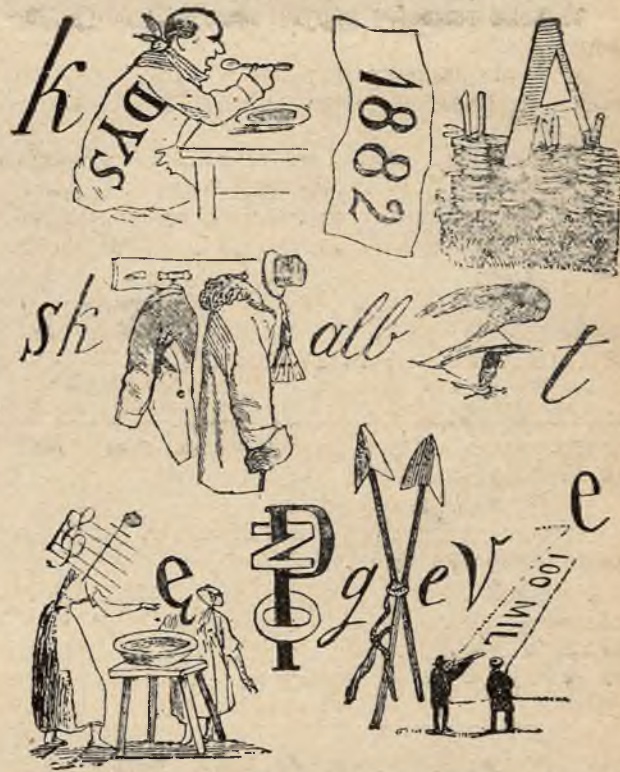 k DYS 1882 A
sk alb t
ę P O g ev 100 MIL e